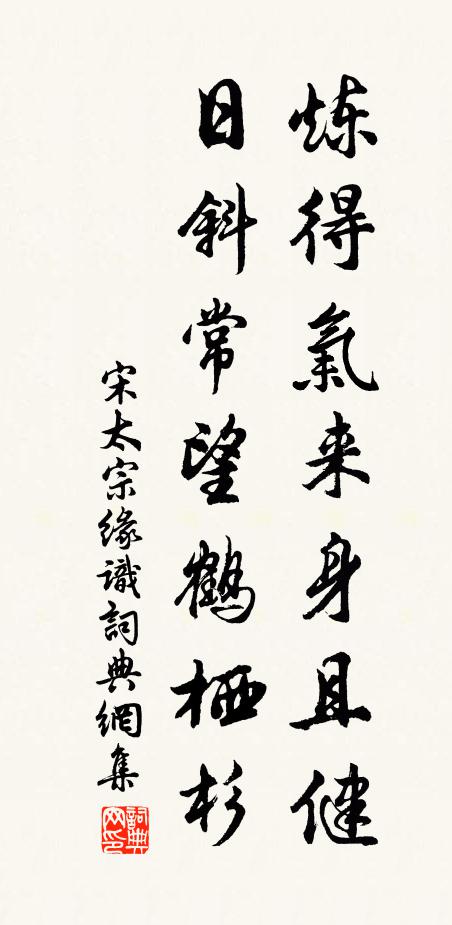 炼得氣来身且健
日斜常望鹤栖杉
宋太宗缘識詞典網集
詞典网印